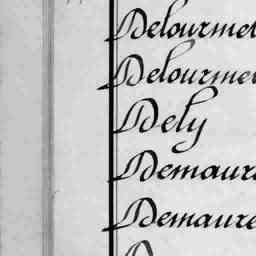 Delourmet
Delourme
Dely
Demaur
Demaure
D